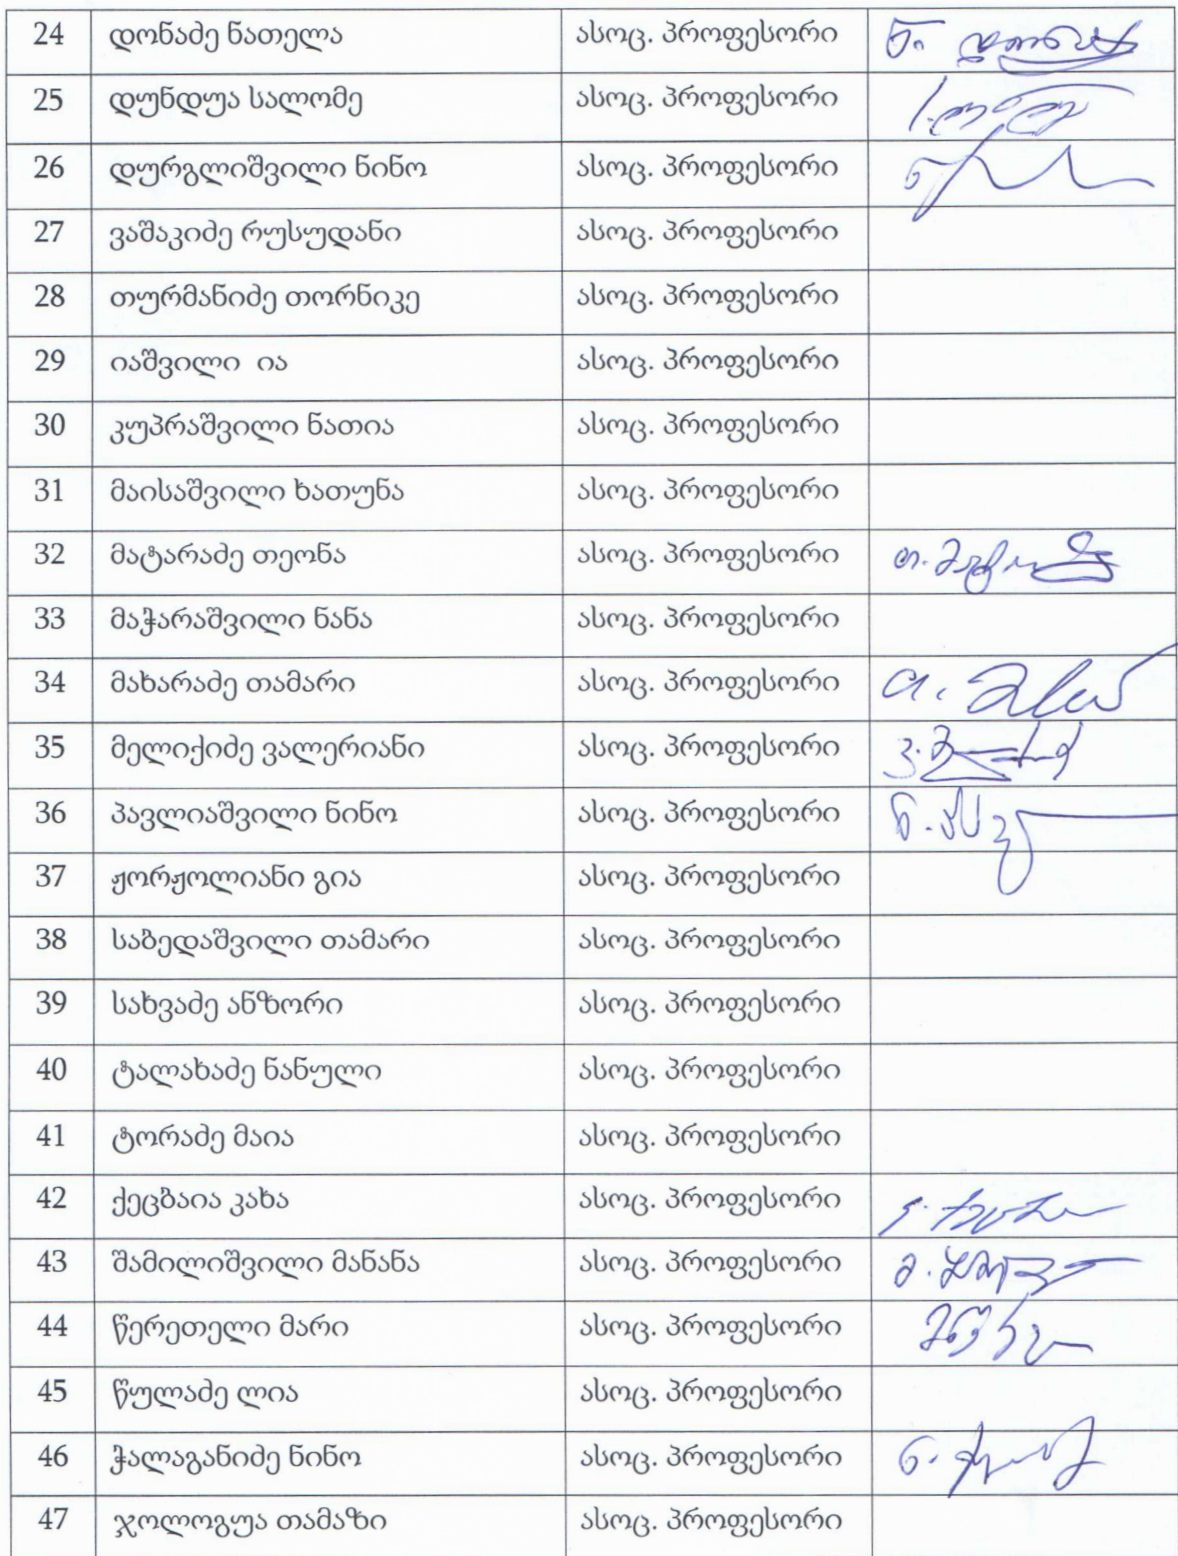 24 დონაძე ნათელა ასოც. პროფესორი
25 დუნდუა სალომე ასოც. პროფესორი
26 დურგლიშვილი ნინო ასოც. პროფესორი
27 ვაშაკიძე რუსუდანი ასოც. პროფესორი
28 თურმანიძე თორნიკე ასოც. პროფესორი
29 იაშვილი ია ასოც. პროფესორი
30 კუპრაშვილი ნათია ასოც. პროფესორი
31 მაისაშვილი ხათუნა ასოც. პროფესორი
32 მატარაძე თეონა ასოც. პროფესორი
33 მაჭარაშვილი ნანა ასოც. პროფესორი
34 მახარაძე თამარი ასოც. პროფესორი
35 მელიქიძე ვალერიანი ასოც. პროფესორი
36 პავლიაშვილი ნინო ასოც. პროფესორი
37 ჟორჟოლიანი გია ასოც. პროფესორი
38 საბედაშვილი თამარი ასოც. პროფესორი
39 სახვაძე ანზორი ასოც. პროფესორი
40 ტალახაძე ნანული ასოც. პროფესორი
41 ტორაძე მაია ასოც. პროფესორი
42 ქეცბაია კახა ასოც. პროფესორი
43 შამილიშვილი მანანა ასოც. პროფესორი
44 წერეთელი მარი ასოც. პროფესორი
45 წულაძე ლია ასოც. პროფესორი
46 ჭალაგანიძე ნინო ასოც. პროფესორი
47 ჯოლოგუა თამაზი ასოც. პროფესორი